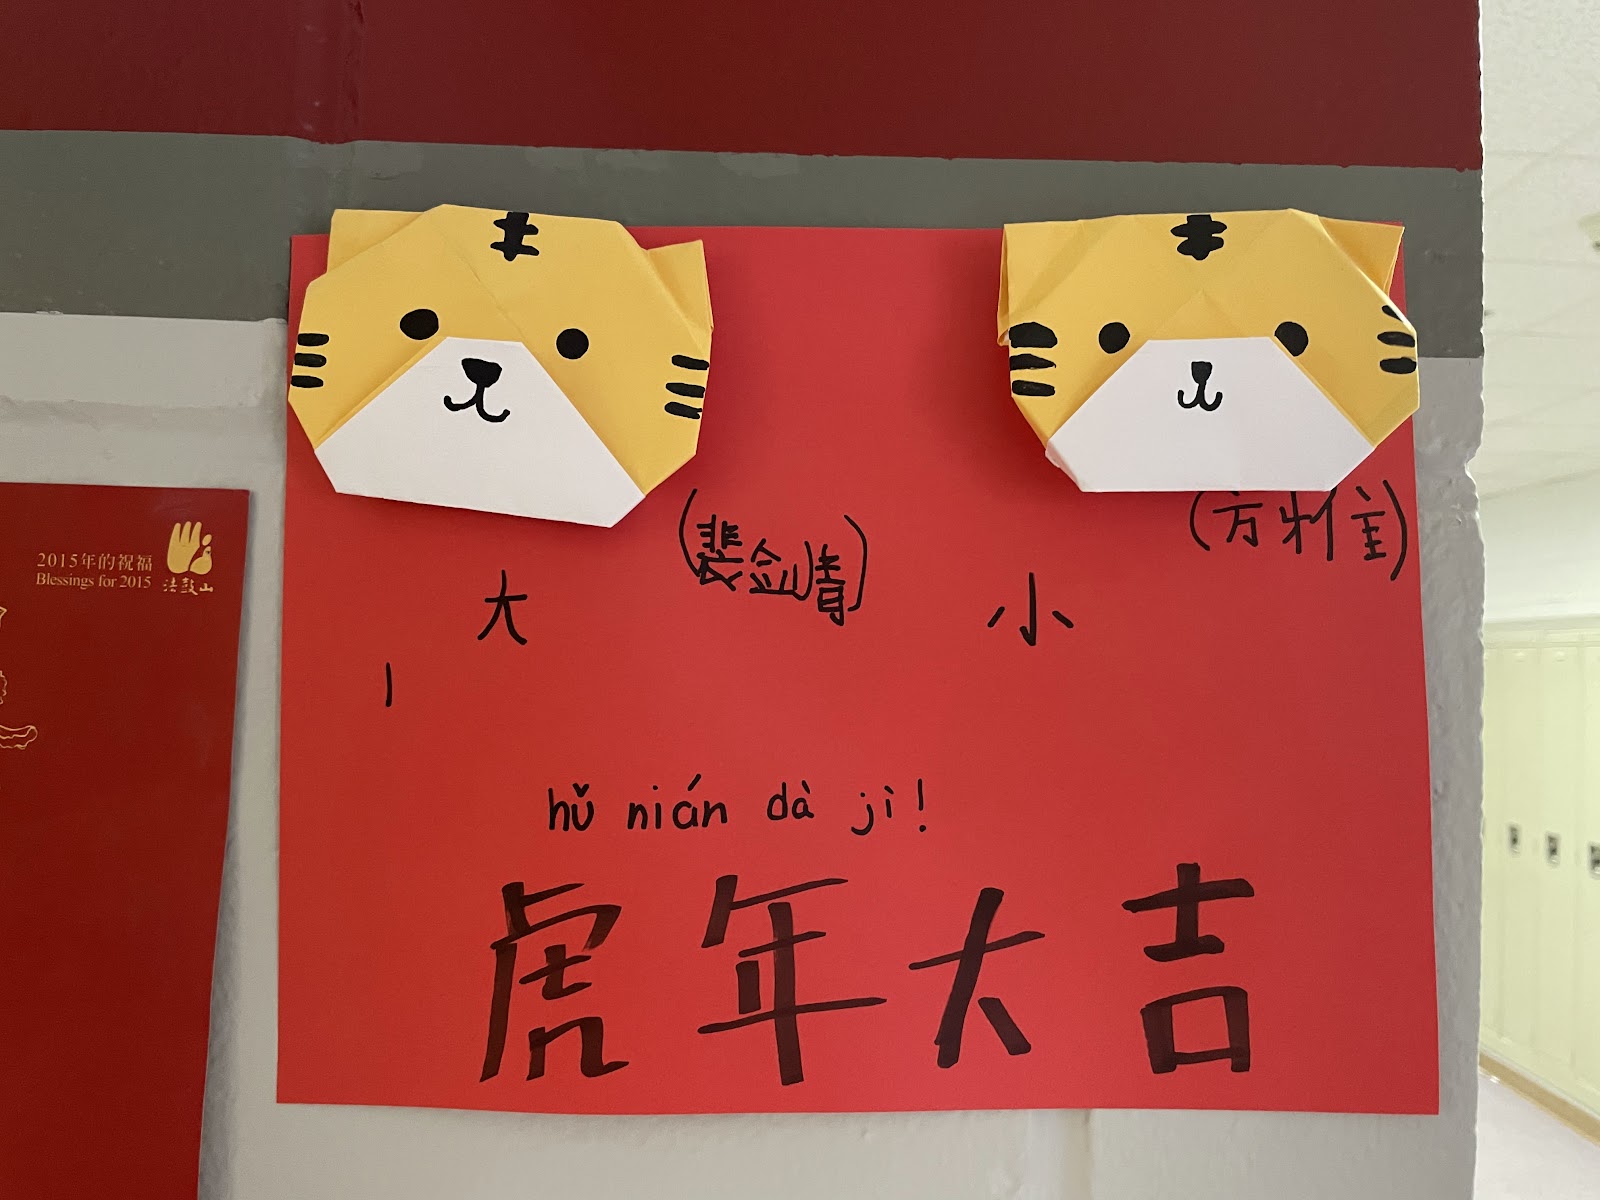 2015年的祝福
Blessings for 2015
法鼓山
(裴剑青)
(方雅)
大
小
hǔ nián dà jì!
虎年大吉